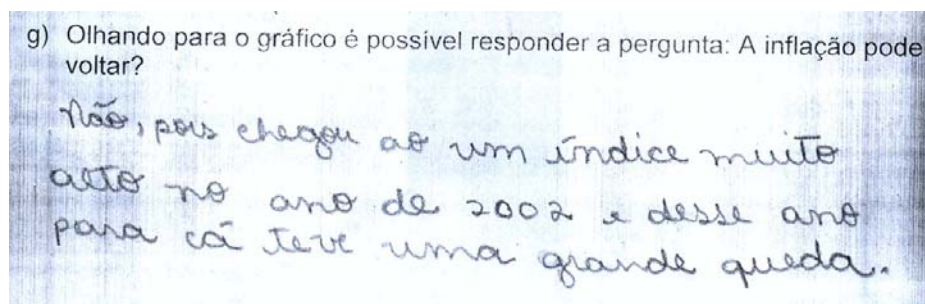 g) Olhando para o gráfico é possível responder a pergunta: A inflação pode
voltar?
Não, pois chegou ao um índice muito
alto no ano de 2002 e desse ano
para cá teve uma grande queda.